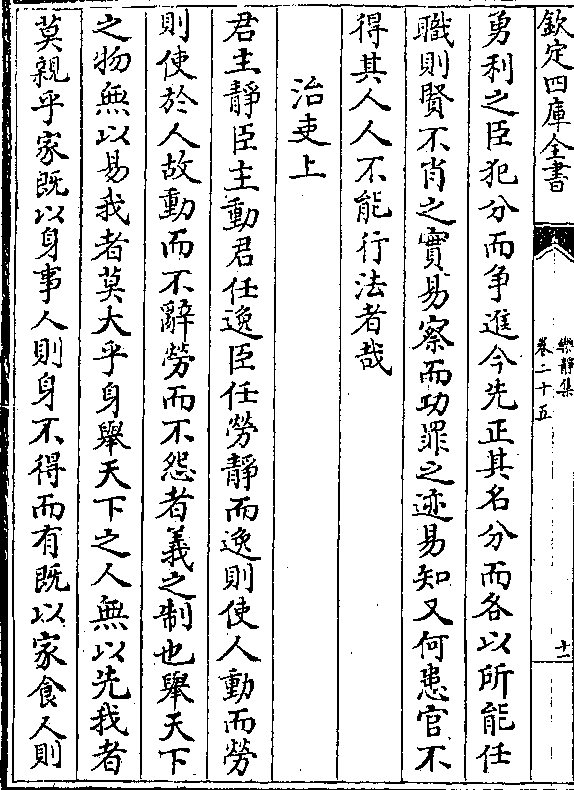 欽定四庫全書
樂靜集
卷二十五
十一
勇利之臣犯分而争進今先正其名分而各以所能任
職則賢不肖之實易察而功罪之迹易知又何患官不
得其人人不能行法者哉
治吏上
君主靜臣主動君任逸臣任勞靜而逸則使人動而勞
則使於人故動而不辭勞而不怨者義之制也舉天下
之物無以易我者莫大乎身舉天下之人無以先我者
莫親乎家既以身事人則身不得而有既以家食人則